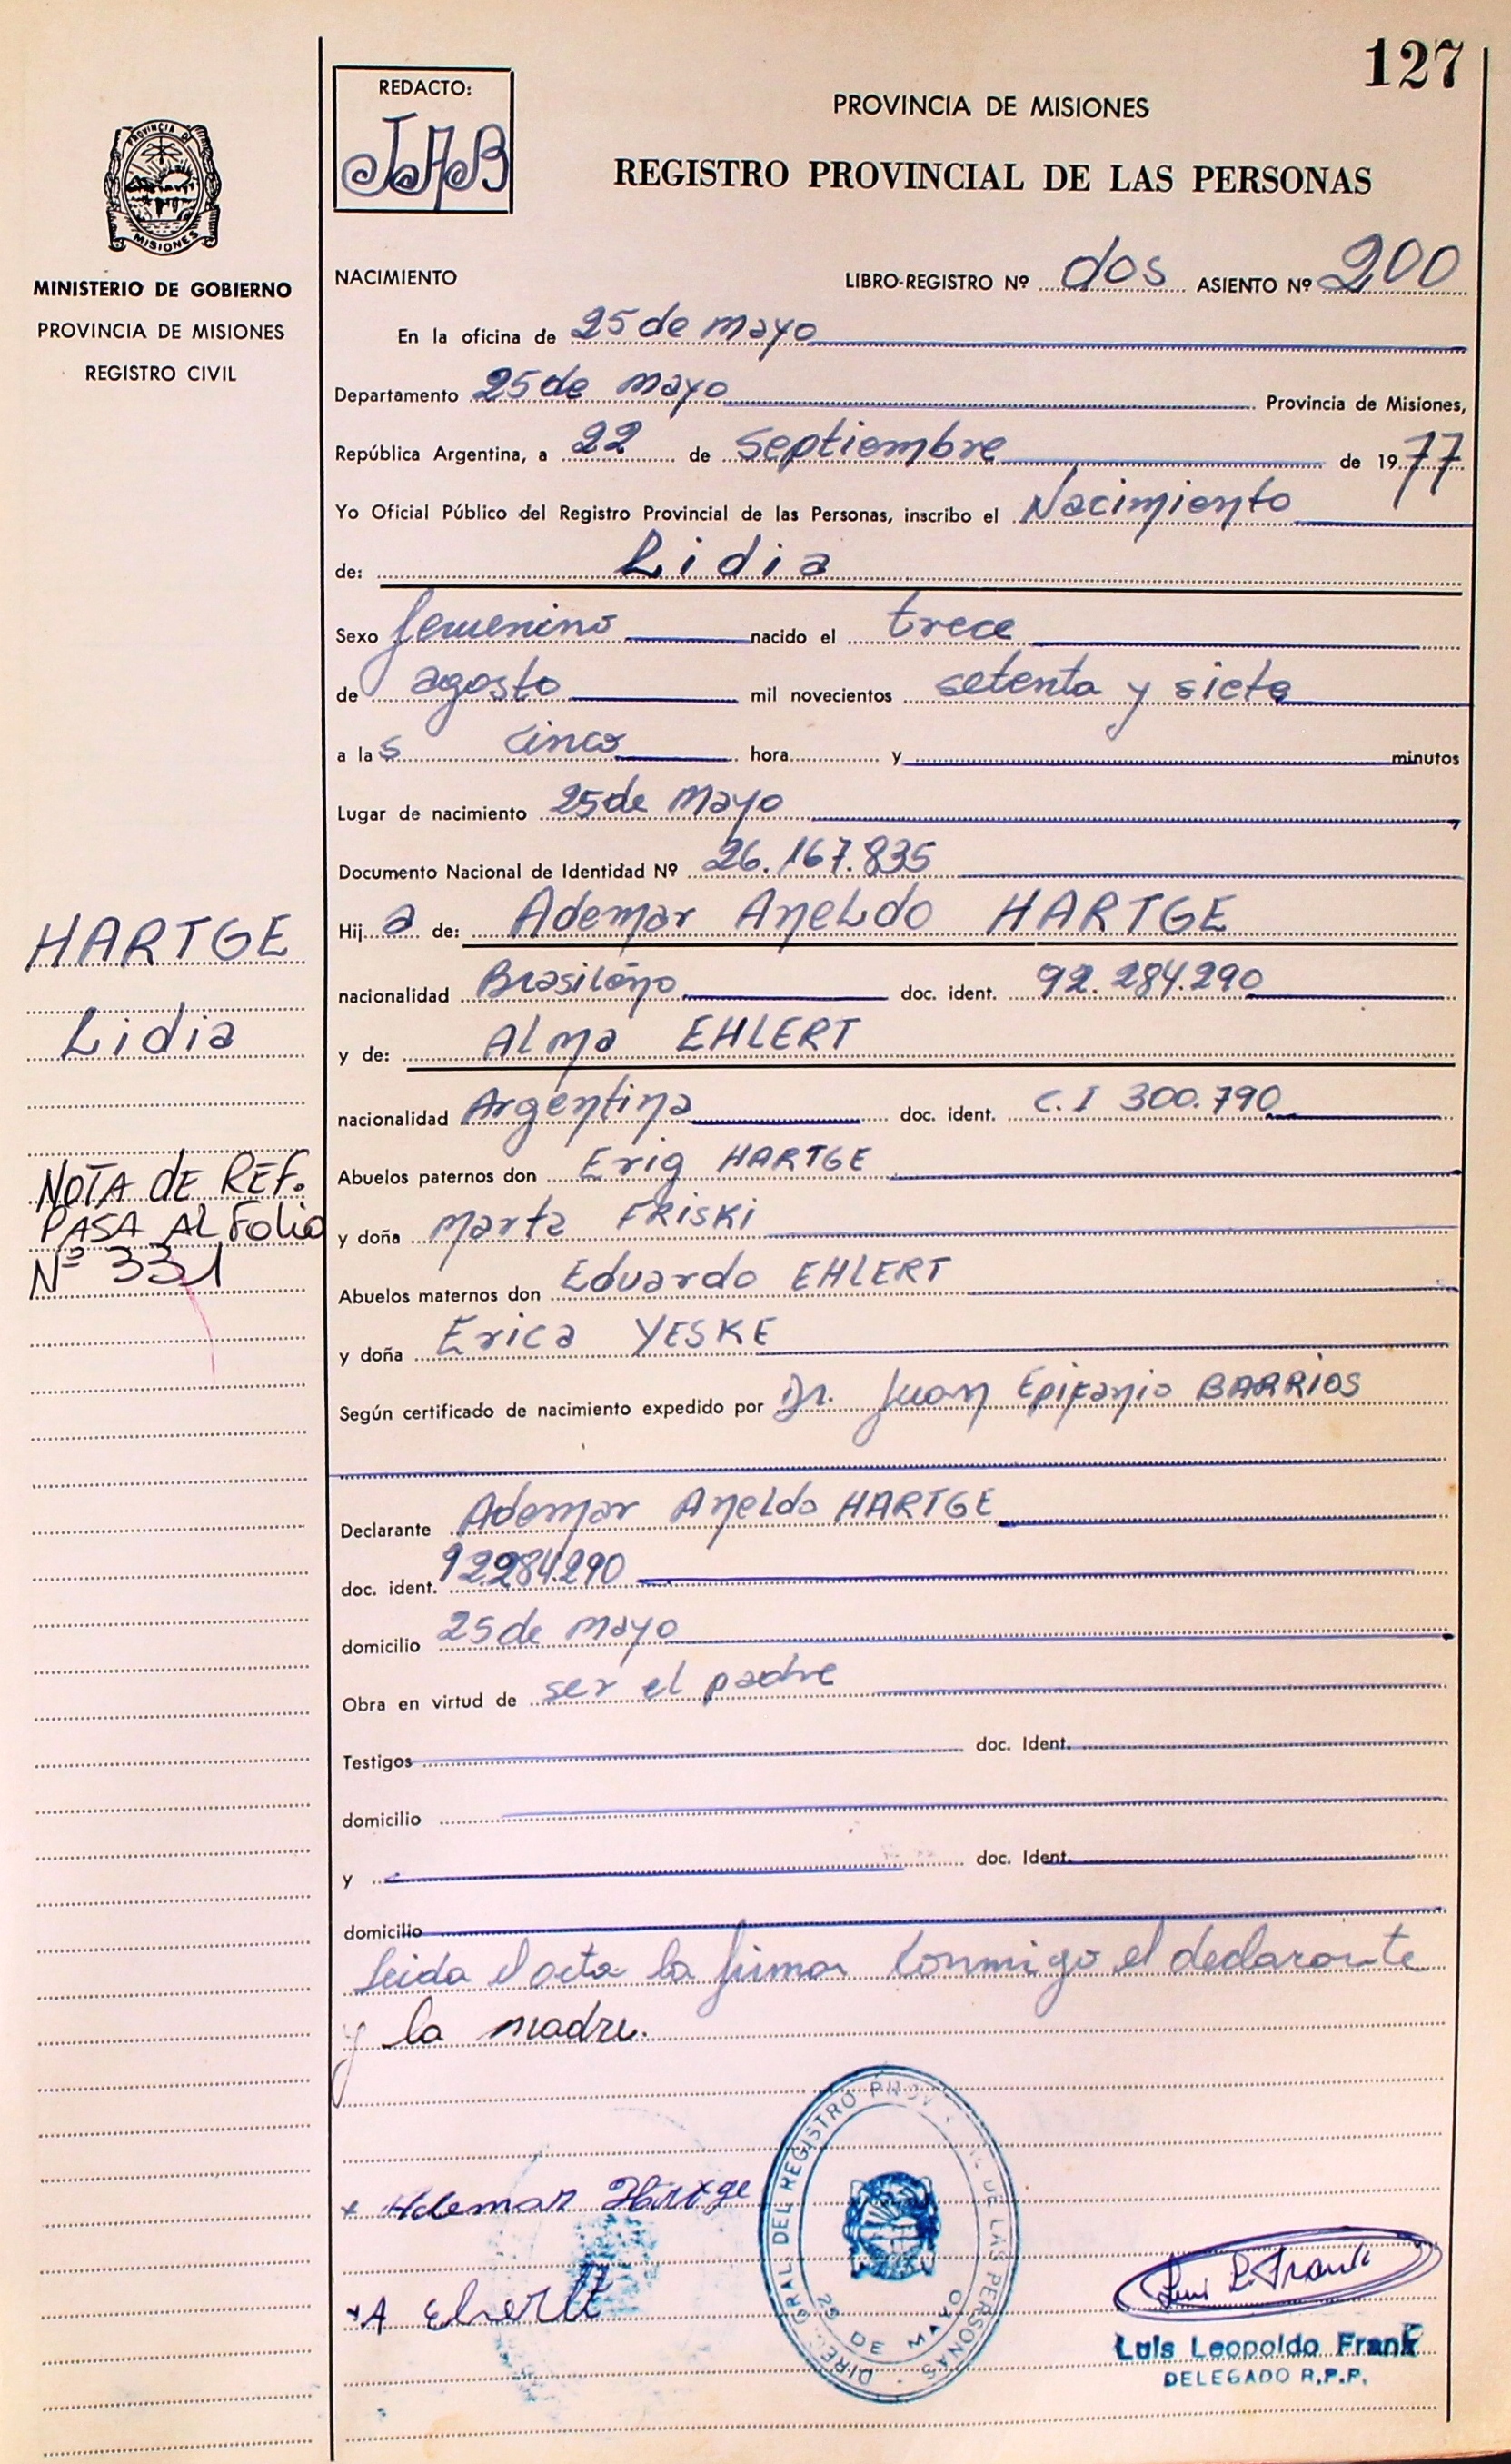 127
REDACTO:
JAB
PROVINCIA DE MISIONES
REGISTRO PROVINCIAL DE LAS PERSONAS
PROVINCIA DE
MISIONES
MINISTERIO DE GOBIERNO
PROVINCIA DE MISIONES
REGISTRO CIVIL
NACIMIENTO LIBRO-REGISTRO Nº dos ASIENTO Nº 200
En la oficina de 25 de mayo
Departamento 25 de mayo Provincia de Misiones,
República Argentina, a 22 de septiembre de 1977
Yo Oficial Público del Registro Provincial de las Personas, inscribo el Nacimiento
de: Lidia
Sexo femenino nacido el trece
de agosto mil novecientos setenta y siete
a las cinco hora y minutos
Lugar de nacimiento 25 de Mayo
Documento Nacional de Identidad Nº 26.167.835
Hija de: Ademar Aneldo HARTGE
nacionalidad Brasileño doc. ident. 92.284.290
y de: Alma EHLERT
nacionalidad Argentina doc. ident. C.I 300.790
Abuelos paternos don Erig HARTGE
y doña Marta FRISKI
Abuelos maternos don Eduardo EHLERT
y doña Erica YESKE
Según certificado de nacimiento expedido por Dr. Juan Epifanio BARRIOS
Declarante Ademar Aneldo HARTGE
doc. ident. 92.284.290
domicilio 25 de mayo
Obra en virtud de ser el padre
Testigos doc. Ident.
domicilio
y doc. Ident.
domicilio
Leida el acta la firman conmigo el declarante
y la madre.
HARTGE
Lidia
NOTA DE REF.
PASA AL FOLIO
Nº 331
x Ademar Hartge
x A Ehlert
DIREC. GRAL. DEL REGISTRO PROV. DE LAS PERSONAS
25 DE MAYO
Luis L. Frank
Luis Leopoldo Frank
DELEGADO R.P.P.